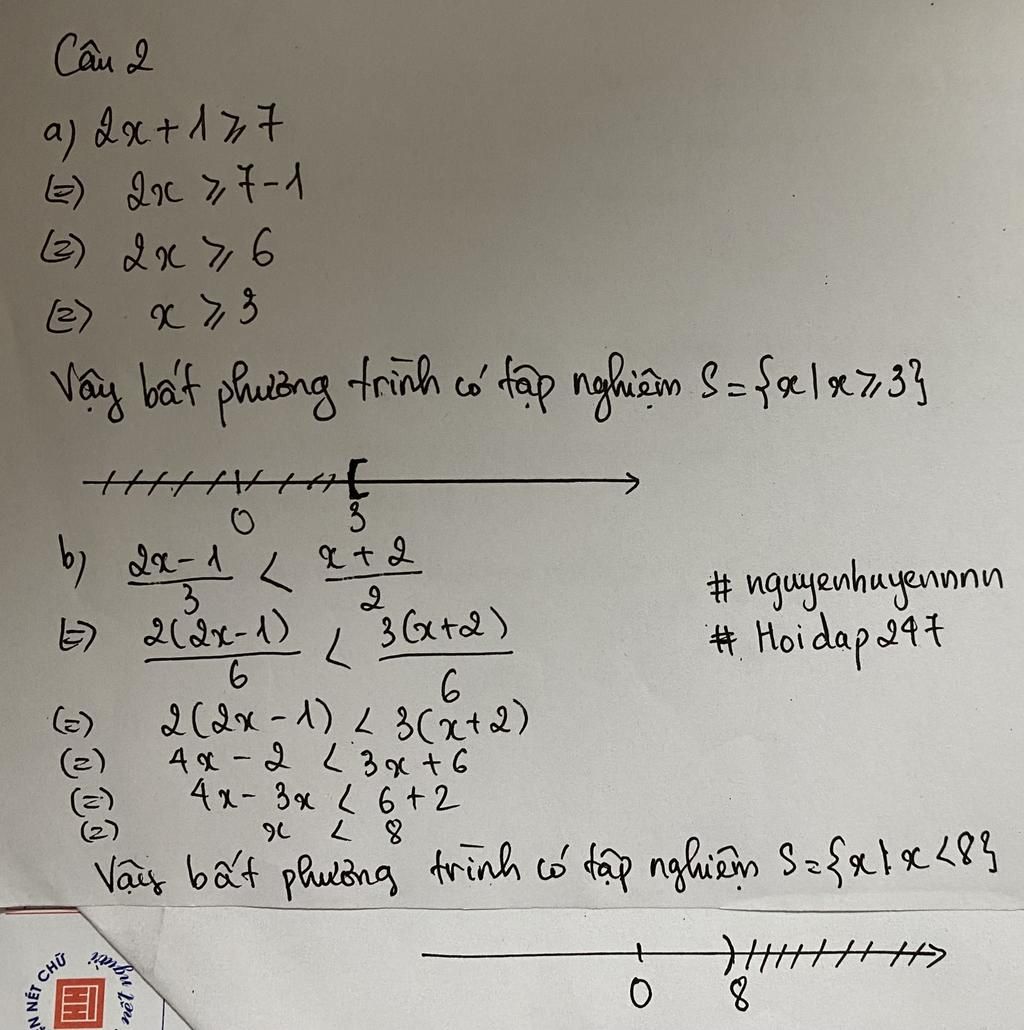 Câu 2
a) 2x + 1 ⩾ 7
(=) 2x ⩾ 7 - 1
(=) 2x ⩾ 6
(=) x ⩾ 3
Vậy bất phương trình có tập nghiệm S = {x | x ⩾ 3}
0 3
b) (2x - 1)/3 < (x + 2)/2
(=) 2(2x - 1)/6 < 3(x + 2)/6
(=) 2(2x - 1) < 3(x + 2)
(=) 4x - 2 < 3x + 6
(=) 4x - 3x < 6 + 2
(=) x < 8
Vậy bất phương trình có tập nghiệm S = {x | x < 8}
0 8
# nguyenhuyennnn
# Hoidap247
NÉT CHỮ
người